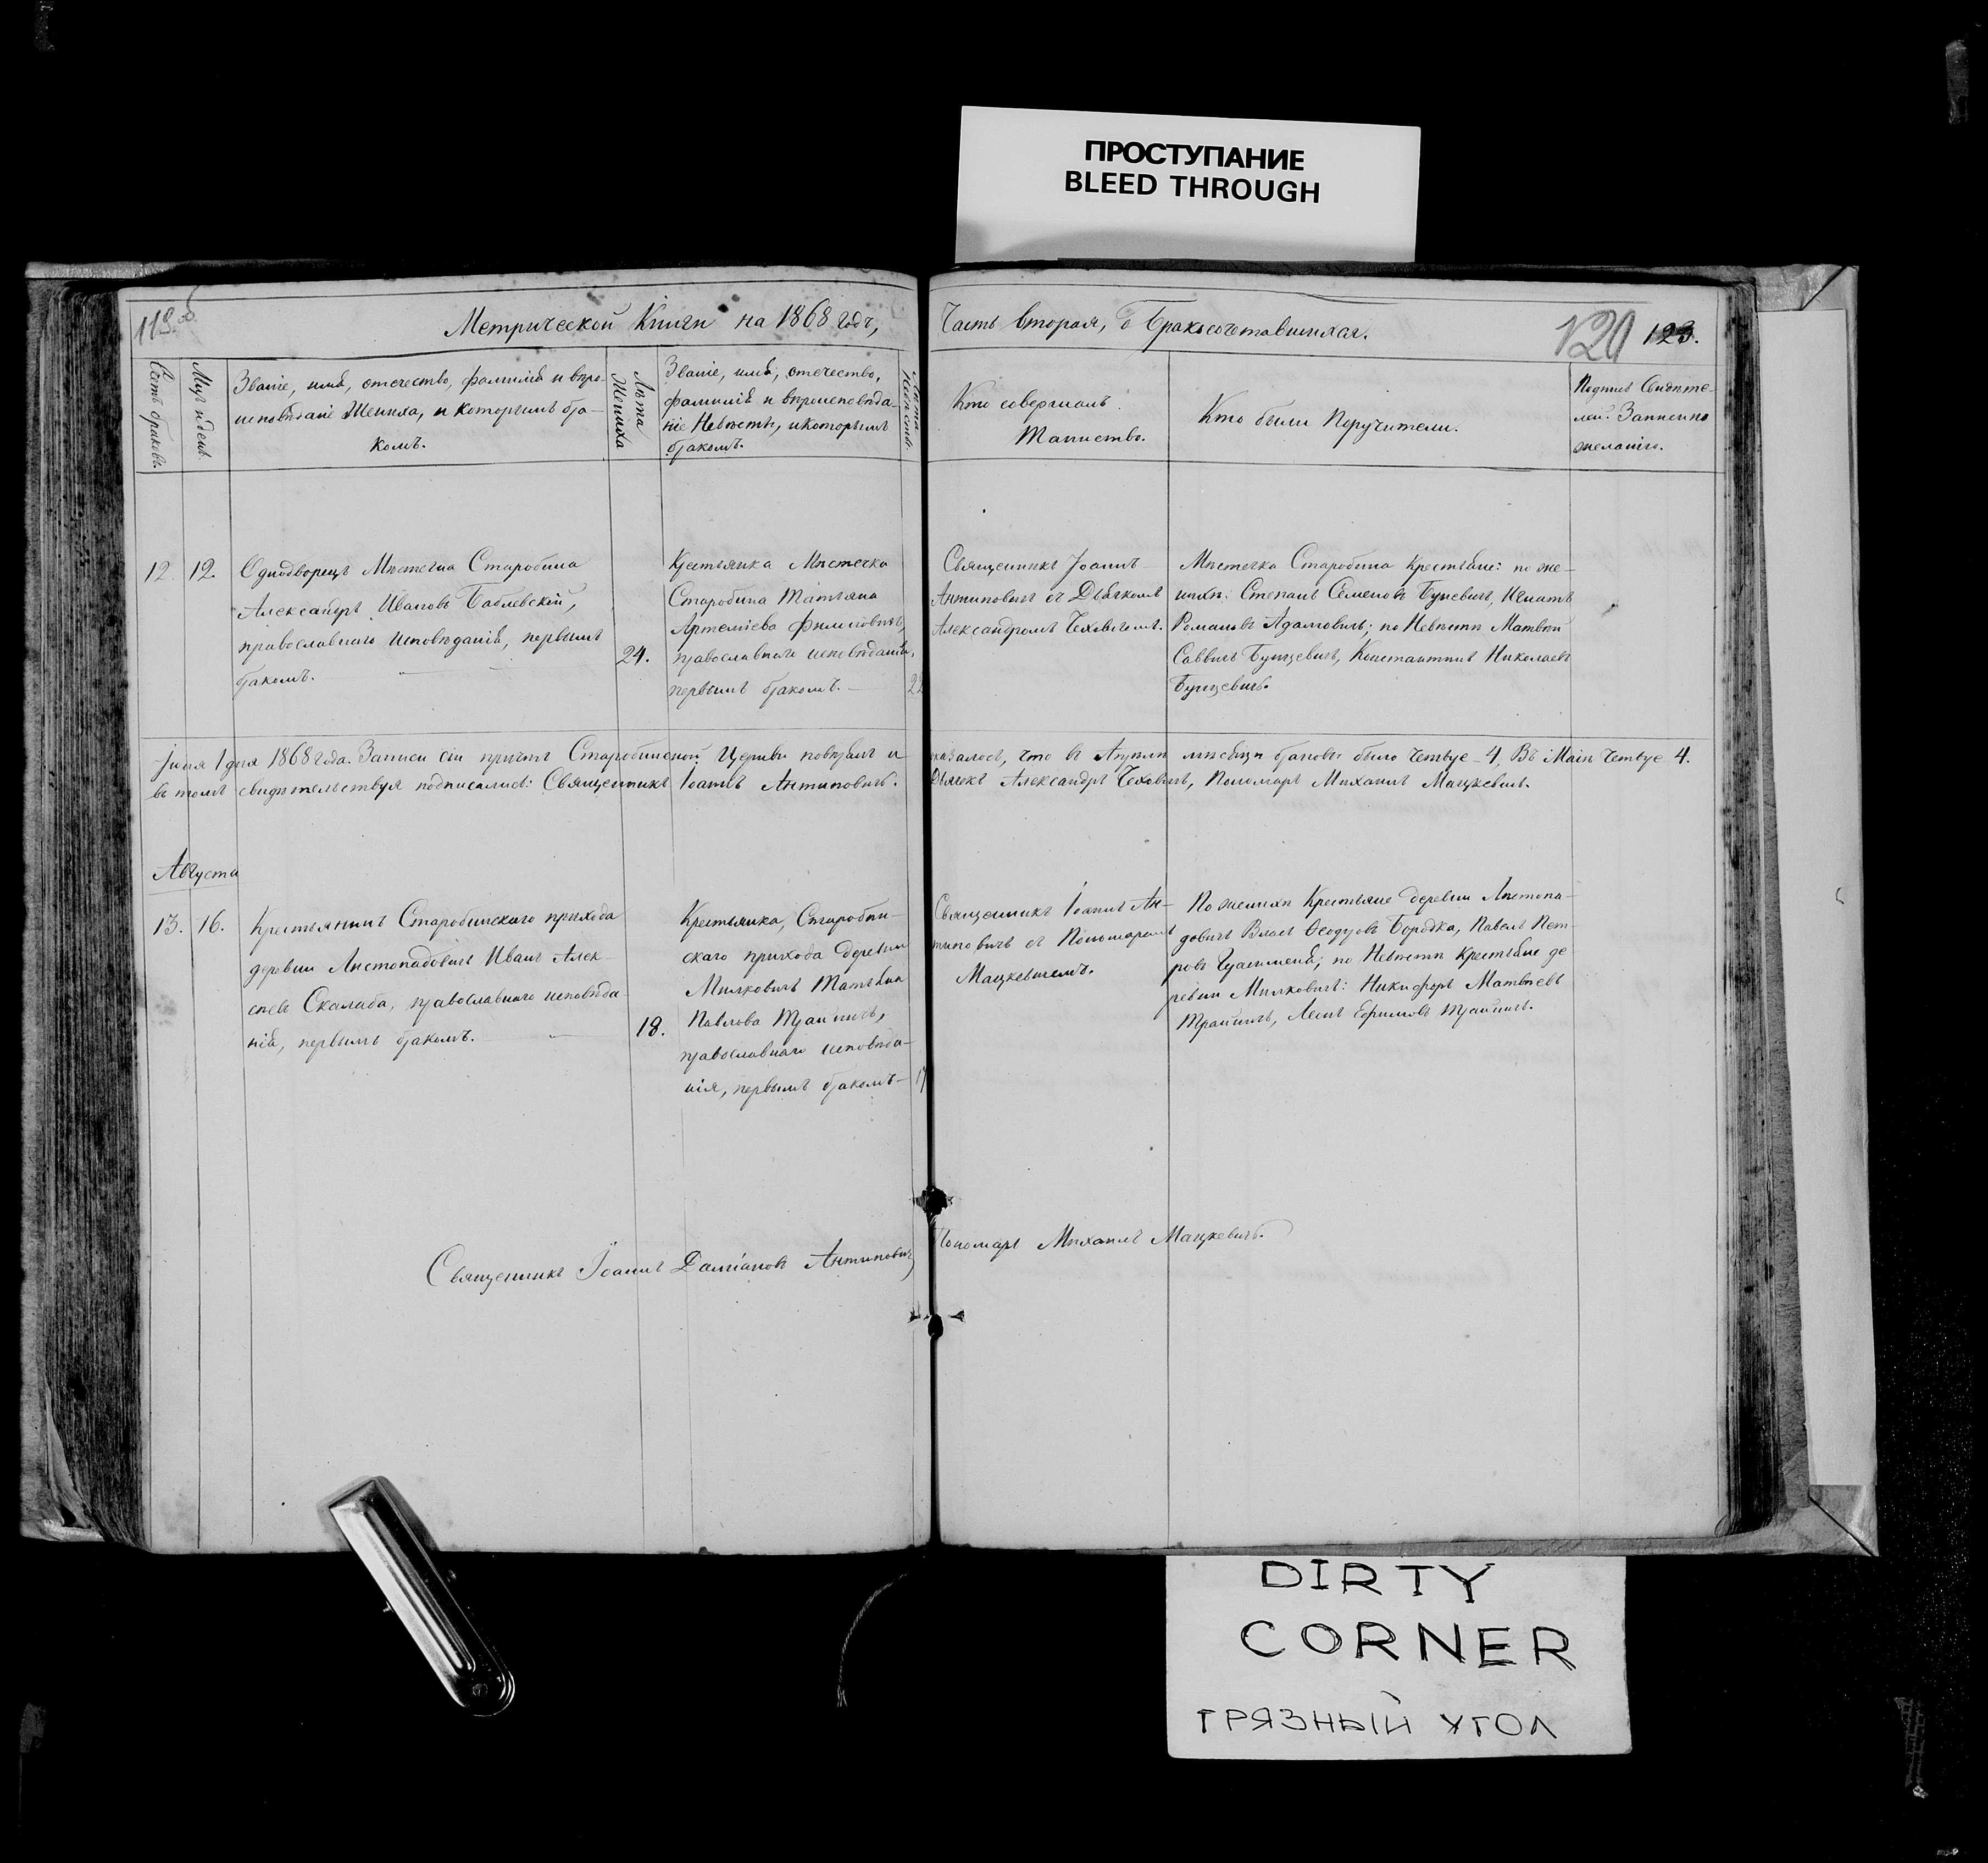 ПРОСТУПАНИЕ
BLEED THROUGH
Метрической Книги на 1868 годъ,
Часть вторая, о Бракосочетавшихся.
120 123.
Счетъ браковъ.
Мѣсяцъ и день.
Званіе, имя, отечество, фамилія и вѣро-
исповѣданіе Жениха, и которымъ бра-
комъ.
Лѣта Жениха
Званіе, имя, отечество,
фамилія и вѣроисповѣда-
ніе Невѣсты, и которымъ
бракомъ.
Лѣта Невѣсты.
Кто совершалъ
Таинство.
Кто были Поручители.
Подпись Свидѣте-
лей Записи по
желанію.
12. 12.
Однодворецъ Мѣстечка Старобина
Александръ Ивановъ Баблевскій,
православнаго исповѣданія, первымъ
бракомъ.
24.
Крестьянка Мѣстечка
Старобина Татьяна
Артеміева Филиповичъ,
православнаго исповѣданія,
первымъ бракомъ.
22
Священникъ Іоаннъ
Антиповичъ съ Дьячкомъ
Александромъ Чеховичемъ.
Мѣстечка Старобина Крестьяне: по же-
нихѣ: Степанъ Семеновъ Бунцевичъ, Игнатъ
Романовъ Адамовичъ; по Невѣстѣ Матвѣй
Саввичъ Бунцевичъ, Константинъ Николаевъ
Бунцевичъ.
Іюня 1 дня 1868 года. Записи сіи причтъ Старобинской Церкви повѣрялъ и оказалось, что въ Апрѣлѣ мѣсяцѣ браковъ было четыре - 4, Въ Маѣ четыре 4.
въ томъ свидѣтельствуя подписались: Священникъ Іоаннъ Антиповичъ. Дьячекъ Александръ Чеховичъ, Пономарь Михаилъ Мацкевичъ.
Августа
13. 16.
Крестьянинъ Старобинскаго прихода
деревни Листопадовичъ Иванъ Алек-
сѣевъ Скалаба, православнаго исповѣда-
нія, первымъ бракомъ.
18.
Крестьянка, Старобин-
скаго прихода деревни
Милковичъ Татьяна
Павлова Трайничъ,
православнаго исповѣда-
нія, первымъ бракомъ
17
Священникъ Іоаннъ Ан-
типовичъ съ Пономаремъ
Мацкевичемъ.
По женихѣ Крестьяне деревни Листопа-
довичъ Власъ Ѳеодоровъ Бородка, Павелъ Пет-
ровъ; по Невѣстѣ Крестьяне де-
ревни Милковичъ: Никифоръ Матвѣевъ
Трайничъ, Леонъ Ефимовъ Трайничъ.
Священникъ Іоаннъ Даміановъ Антиповичъ
Пономарь Михаилъ Мацкевичъ.
DIRTY
CORNER
ГРЯЗНЫЙ УГОЛ